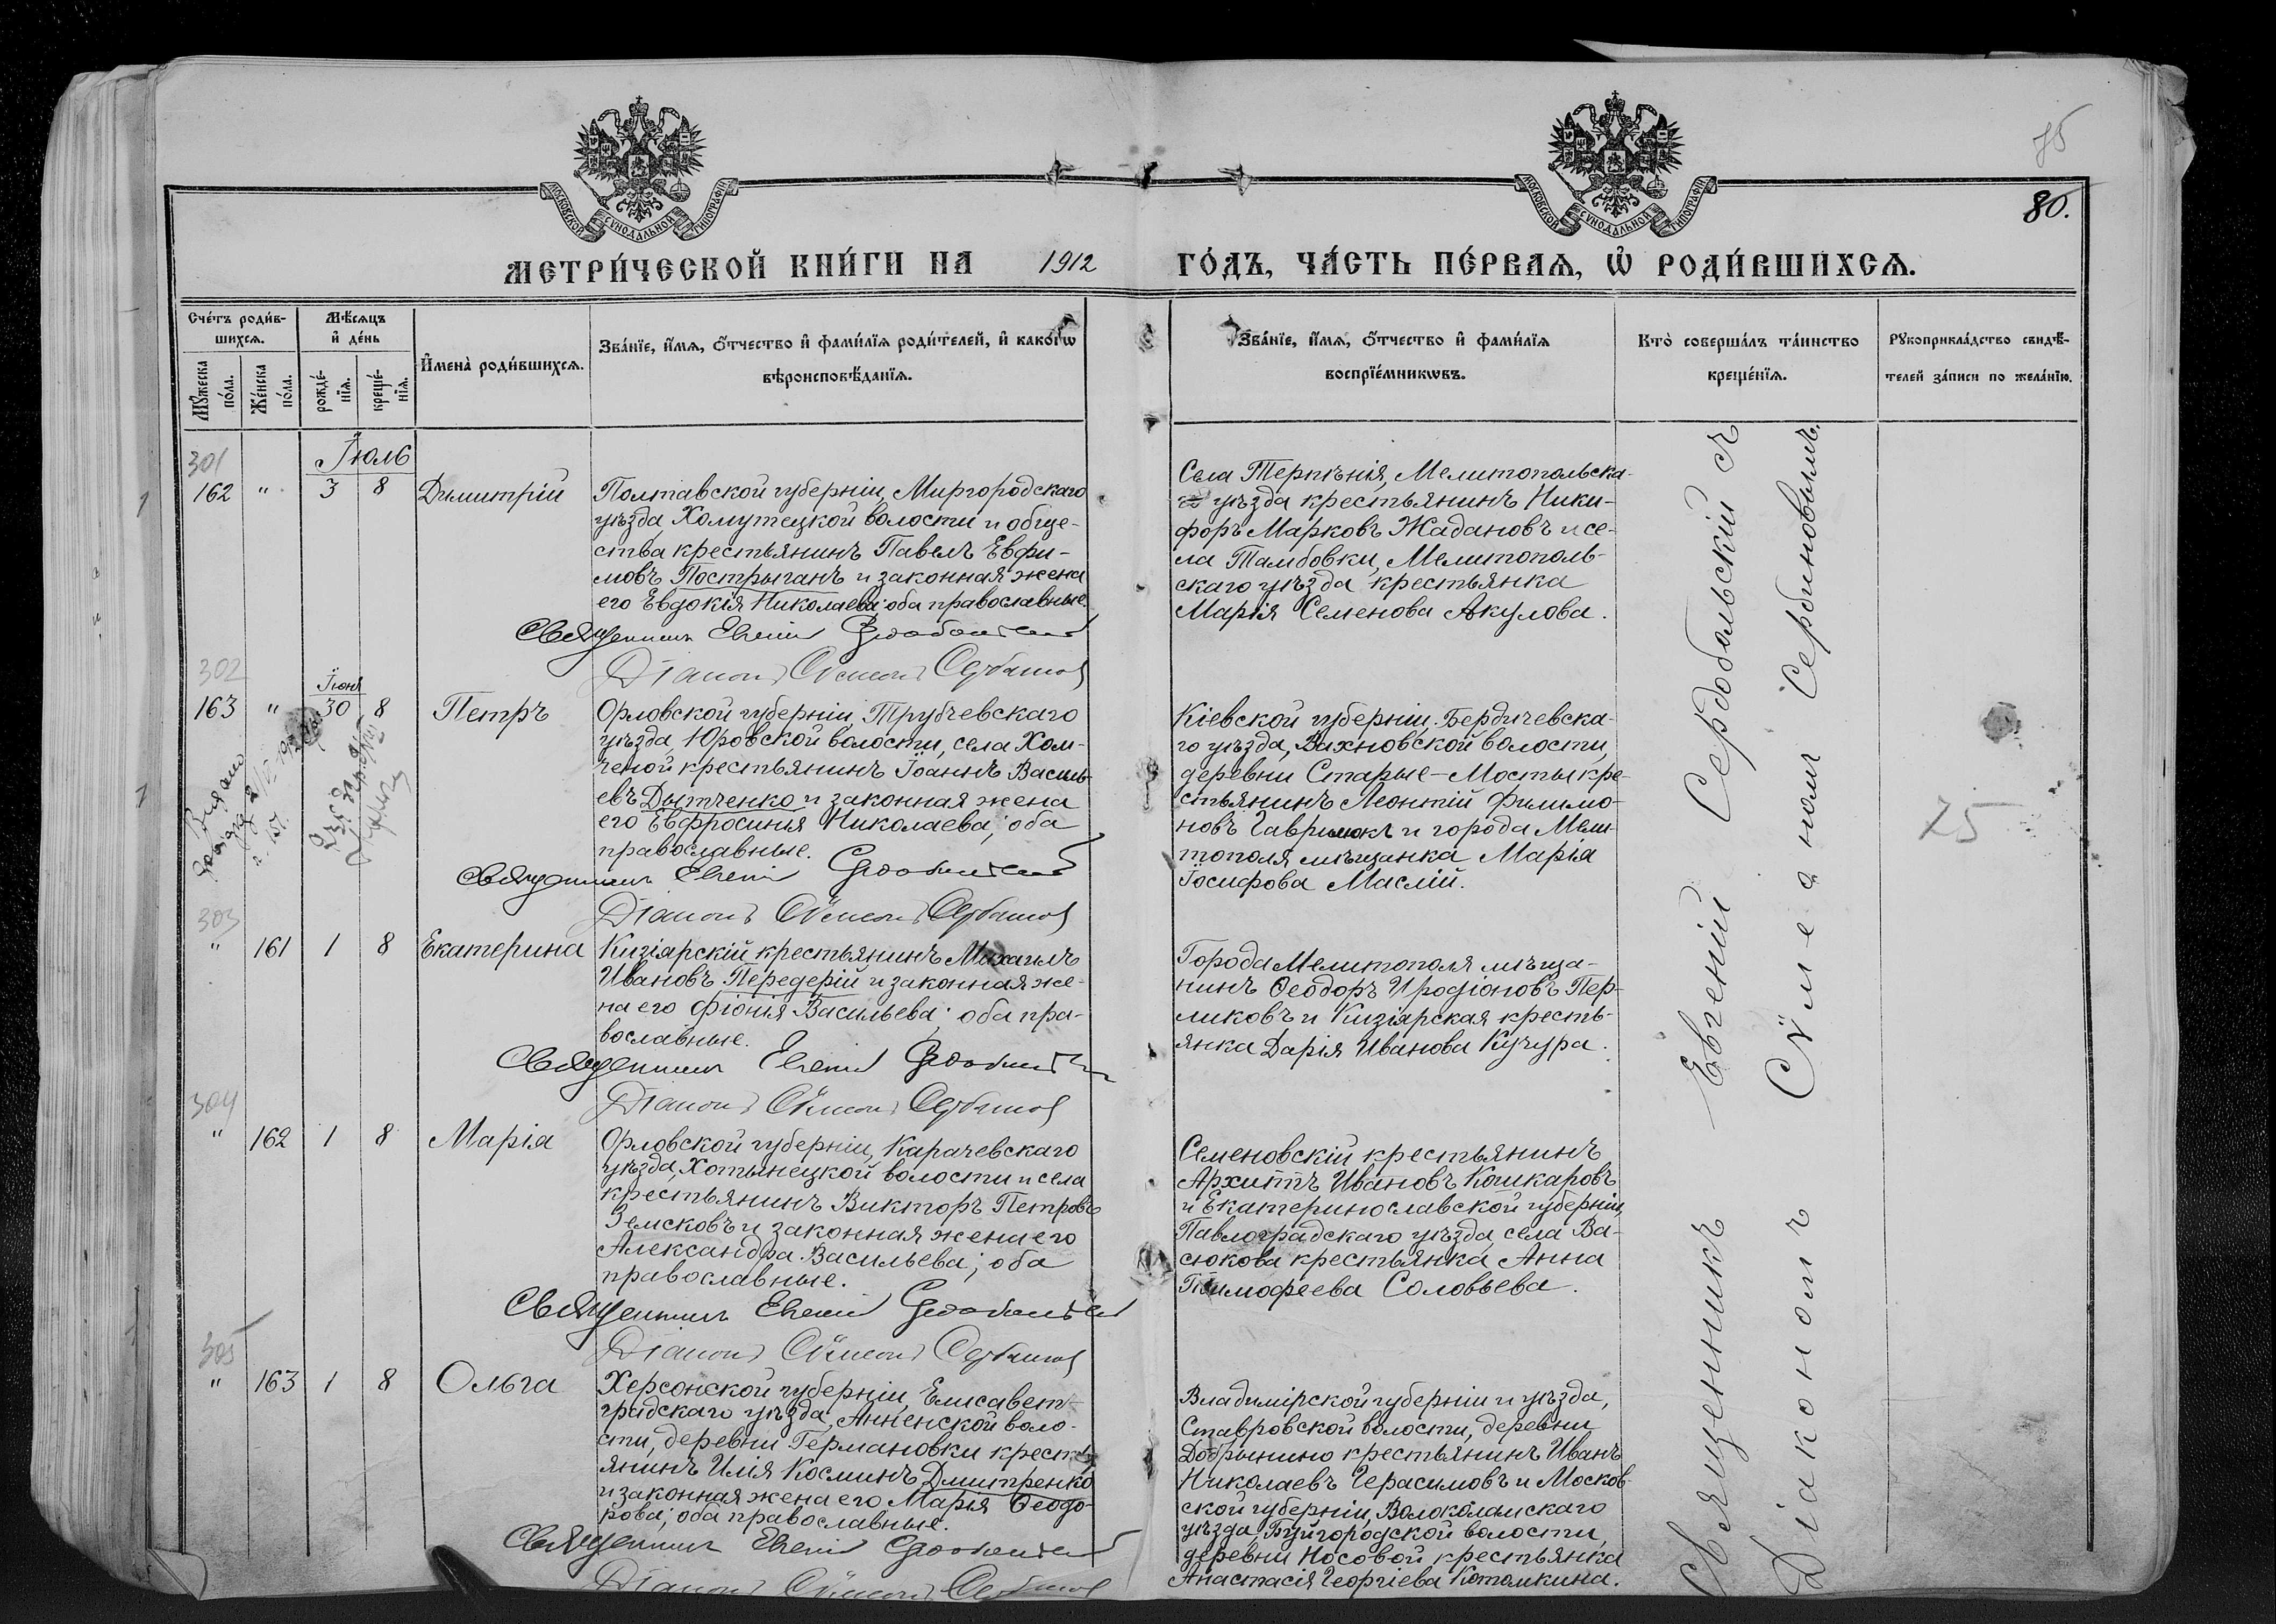 75
80.
МОСКОВСКОЙ СѴНОДАЛЬНОЙ ТИПОГРАФІИ
МОСКОВСКОЙ СѴНОДАЛЬНОЙ ТИПОГРАФІИ
МЕТРИ́ЧЕСКОЙ КНИ́ГИ НА 1912 ГО́ДЪ, ЧА́СТЬ ПЕ́РВАѦ, Ѡ҆ РОДИ́ВШИХСѦ.
Сче́тъ роди́в-
шихсѧ.
Мѣ́сѧцъ
и҆ де́нь
Мꙋ́жеска по́ла.
Же́нска по́ла.
рожде́-нїѧ.
креще́-нїѧ.
И҆мена̀ роди́вшихсѧ.
Зва́нїе, и҆́мѧ, ѻ҆́тчество и҆ фами́лїѧ роди́телей, и҆ како́гѡ
вѣроисповѣ́данїѧ.
Зва́нїе, и҆́мѧ, ѻ҆́тчество и҆ фами́лїѧ
воспрїе́мникѡвъ.
Кто̀ соверша́лъ та́инство
креще́нїѧ.
Рꙋкоприкла́дство свидѣ́-
телей за́писи по жела́нїю.
301
Іюль
162 " 3 8 Димитрій
Полтавской губерніи, Миргородскаго
уѣзда, Хомутецкой волости и обще-
ства крестьянинъ Павелъ Евфи-
мовъ Пострыганъ и законная жена
его Евдокія Николаева; оба православные.
Священникъ Евгеній Сердобольскій
Діаконъ Сѵмеонъ Сербиновъ
Села Терпѣнія, Мелитопольска-
го уѣзда крестьянинъ Ники-
форъ Марковъ Жадановъ и се-
ла Тамбовки, Мелитополь-
скаго уѣзда крестьянка
Марія Семенова Акулова.
302
Іюня
163 " 30 8 Петръ
Выдано
Орловской губерніи, Трубчевскаго
уѣзда, Юровской волости, села Хол-
ченой крестьянинъ Іоаннъ Василь-
евъ Дытченко и законная жена
его Евфросинія Николаева; оба
православные.
Священникъ Евгеній Сердобольскій
Діаконъ Сѵмеонъ Сербиновъ
Кіевской губерніи, Бердичевска-
го уѣзда, Вахновской волости,
деревни Старые-Мосты кре-
стьянинъ Леонтій Филимо-
новъ Гаврилюкъ и города Мели-
тополя мѣщанка Марія
Іосифова Маслій.
75
303
" 161 1 8 Екатерина
Кизіярскій крестьянинъ Михаилъ
Ивановъ Передерій и законная же-
на его Фіонія Васильева; оба пра-
вославные.
Священникъ Евгеній Сердобольскій
Діаконъ Сѵмеонъ Сербиновъ
Города Мелитополя мѣща-
нинъ Ѳеодоръ Иродіоновъ Пер-
ликовъ и Кизіярская кресть-
янка Дарія Иванова Кучура.
304
" 162 1 8 Марія
Орловской губерніи, Карачевскаго
уѣзда, Хотынецкой волости и села
крестьянинъ Викторъ Петровъ
Земсковъ и законная жена его
Александра Васильева; оба
православные.
Священникъ Евгеній Сердобольскій
Діаконъ Сѵмеонъ Сербиновъ
Семеновскій крестьянинъ
Архиппъ Ивановъ Кошкаровъ
и Екатеринославской губерніи,
Павлоградскаго уѣзда, села Ва-
сюкова крестьянка Анна
Тимофеева Соловьева.
305
" 163 1 8 Ольга
Херсонской губерніи, Елисавет-
градскаго уѣзда, Анненской воло-
сти, деревни Германовки кресть-
янинъ Илія Косминъ Дмитренко
и законная жена его Марія Ѳеодо-
рова; оба православные.
Священникъ Евгеній Сердобольскій
Діаконъ Сѵмеонъ Сербиновъ
Владимірской губерніи и уѣзда,
Ставровской волости, деревни
Добрынино крестьянинъ Иванъ
Николаевъ Герасимовъ и Москов-
ской губерніи, Волоколамскаго
уѣзда, Буйгородской волости,
деревни Носовой крестьянка
Анастасія Георгіева Котомкина.
Священникъ Евгеній Сердобольскій съ
Діакономъ Сѵмеономъ Сербиновымъ.